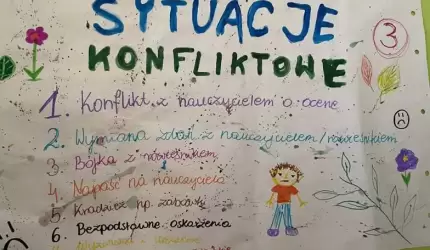 SYTUACJE
KONFLIKTOWE
3
1. Konflikt z nauczycielem o ocenę
2. Wymiana zdań z nauczycielem/rówieśnikiem
3 Bójka z rówieśnikiem
4. Napaść na nauczyciela
5. Kradzież np. zabawki
6 Bezpodstawne oskarżenia